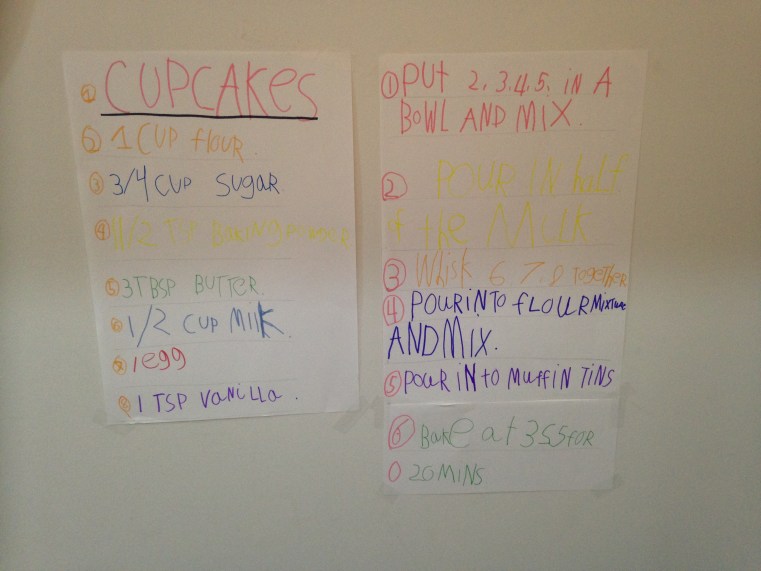 1 CUPCAKes
2 1 CUP flouR.
3 3/4 CUP SugaR
4 1 1/2 TSP BakiNg POWDER
5 3TBSP BUTTeR.
6 1/2 CUP Milk.
1 egg
8 1 TSP VaNilla.
1 PUt 2, 3.4.5. iN A
BOWL AND MiX.
2 POUR IN half
of the MilK
3 Whisk 6 7.8 togetheR
4 POUR iNTO fLOUR MiXTURE
AND MiX.
5 POUR iNtO MUffiN TiNS
6 Bake at 355 foR
0 20 MiNS